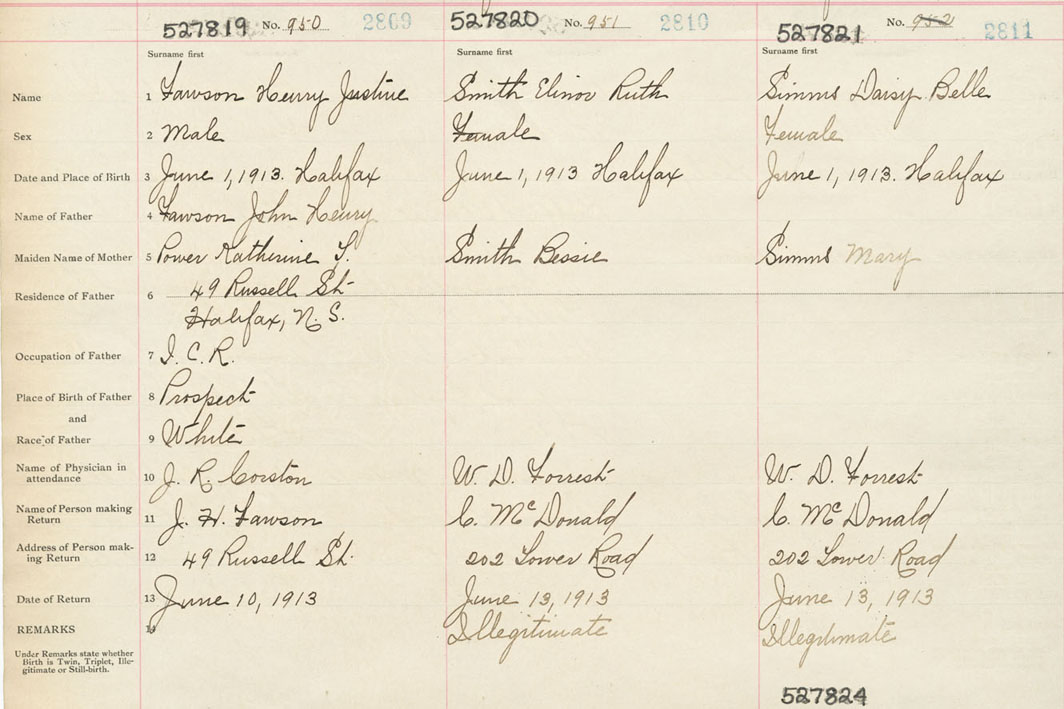 527819 No. 950 2809 527820 No. 951 2810 527821 No. 952 2811
Surname first Surname first Surname first
Name 1 Fawson Henry Justine Smith Elinor Ruth Simms Daisy Belle
Sex 2 Male Female Female
Date and Place of Birth 3 June 1, 1913. Halifax June 1, 1913 Halifax June 1, 1913. Halifax
Name of Father 4 Fawson John Henry
Maiden Name of Mother 5 Power Katherine F. Smith Bessie Simms Mary
Residence of Father 6 49 Russell St.
Halifax, N. S.
Occupation of Father 7 I. C. R.
Place of Birth of Father 8 Prospect
and
Race of Father 9 White
Name of Physician in
attendance 10 J. R. Corston W. D. Forrest W. D. Forrest
Name of Person making
Return 11 J. H. Fawson C. McDonald C. McDonald
Address of Person mak-
ing Return 12 49 Russell St. 202 Lower Road 202 Lower Road
Date of Return 13 June 10, 1913 June 13, 1913 June 13, 1913
REMARKS 14 Illegitimate Illegitimate
Under Remarks state whether
Birth is Twin, Triplet, Ille-
gitimate or Still-birth.
527824